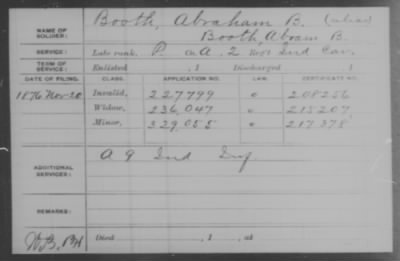 NAME OF SOLDIER: Booth, Abraham B. (alias)
Booth, Abram B.
SERVICE: Late rank, P. Co. A. 2 Reg't Ind Cav.
TERM OF SERVICE: Enlisted , 1 Discharged , 1
DATE OF FILING. CLASS. APPLICATION NO. LAW. CERTIFICATE NO.
1876 Nov. 20 Invalid, 227799 " 208256
Widow, 236,047 " 215207
Minor, 329,055 " 217378
ADDITIONAL SERVICES: A 9 Ind Inf.
REMARKS:
Died , 1 , at